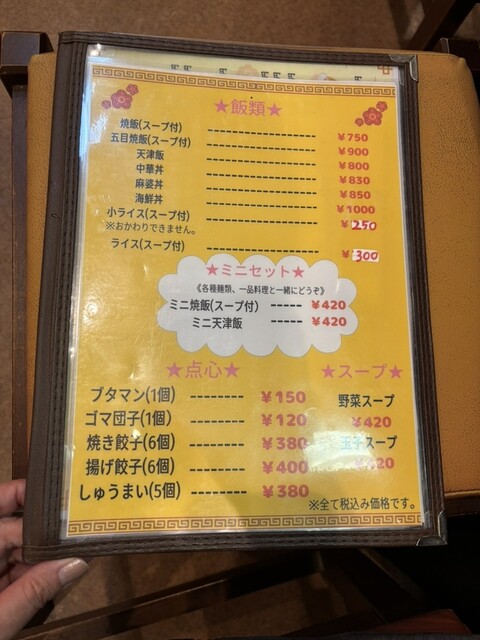 ★飯類★
焼飯(スープ付) ---------------- ¥750
五目焼飯(スープ付) ---------------- ¥900
天津飯 ---------------- ¥800
中華丼 ---------------- ¥830
麻婆丼 ---------------- ¥850
海鮮丼 ---------------- ¥1000
小ライス(スープ付) ---------------- ¥250
※おかわりできません。
ライス(スープ付) ---------------- ¥300
★ミニセット★
《各種麺類、一品料理と一緒にどうぞ》
ミニ焼飯(スープ付) ----- ¥420
ミニ天津飯 ----- ¥420
★点心★
ブタマン(1個) -------- ¥150
ゴマ団子(1個) -------- ¥120
焼き餃子(6個) -------- ¥380
揚げ餃子(6個) -------- ¥400
しゅうまい(5個) -------- ¥380
★スープ★
野菜スープ
¥420
玉子スープ
¥420
※全て税込み価格です。